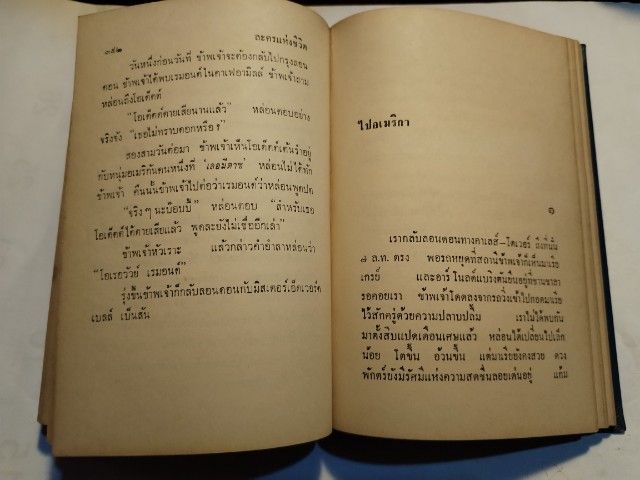 ๓๕๒
ละครแห่งชีวิต
วันหนึ่งก่อนวันที่ ข้าพเจ้าจะต้องกลับไปกรุงลอน
ดอน ข้าพเจ้าได้พบเรมอนด์ในคาเฟอามิลล์ ข้าพเจ้าถาม
หล่อนถึงโอเด็ตต์
"โอเด็ตต์ตายเสียนานแล้ว" หล่อนตอบอย่าง
จริงจัง "เธอไม่ทราบดอกหรือ ?
สองสามวันต่อมา ข้าพเจ้าเห็นโอเด็ตต์เต้นรำอยู่
กับหนุ่มอเมริกันคนหนึ่งที่ 'เลอมีตาซ' หล่อนไม่ได้ทัก
ข้าพเจ้า คืนนั้นข้าพเจ้าไปต่อว่าเรมอนด์ว่าหล่อนพูดปด
"จริง ๆ นะบ๊อบบี้" หล่อนตอบ "สำหรับเธอ
โอเด็ตต์ได้ตายเสียแล้ว พูดละยังไม่เชื่ออีกเล่า"
ข้าพเจ้าหัวเราะ แล้วกล่าวคำอำลาหล่อนว่า
"โอเรอวัวย์ เรมอนด์"
รุ่งขึ้นข้าพเจ้าก็กลับลอนดอนกับมิสเตอร์เอ็ดเวอร์ด
เบลล์ เบ็นสัน
ไปอเมริกา
๑
เรากลับลอนดอนทางคาเลส์–โดเวอร์ ถึงที่นั่น
๘ ล.ท. ตรง พอรถหยุดที่สถานีข้าพเจ้าก็เห็นมาเรีย
เกรย์ และอาร์โนลด์แบริงตันยืนอยู่ที่ชานชาลา
รอคอยเรา ข้าพเจ้าโดดลงจากรถวิ่งเข้าไปกอดมาเรีย
ไว้สักครู่ด้วยความปลาบปลื้ม เราไม่ได้พบกัน
มาตั้งสิบแปดเดือนเศษแล้ว หล่อนได้เปลี่ยนไปเล็ก
น้อย โตขึ้น อ้วนขึ้น แต่มาเรียยังคงสวย ดวง
พักตร์ยังมีรัศมีแห่งความสดชื่นลอยเด่นอยู่ แก้ม